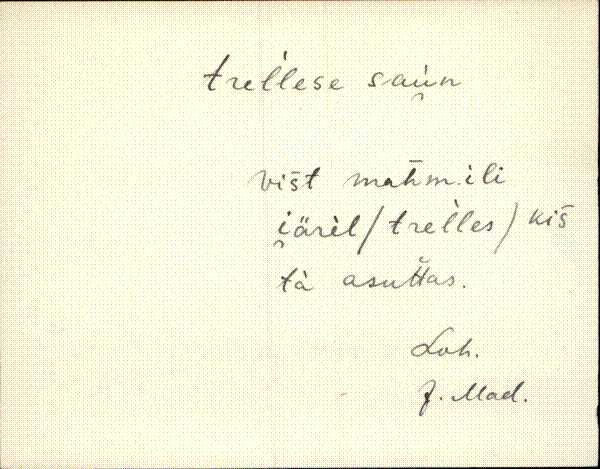 trèllese sau̯n
višt mat̄m.ili
i̯ärèl/trèlles/kiš
tà asut̆t̆as.
Loh.
J. Mad.